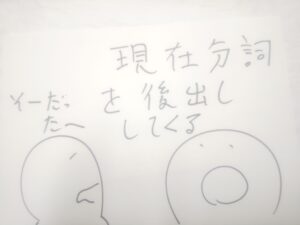 現在分詞
を後出し
してくる
そーだっ
たへ